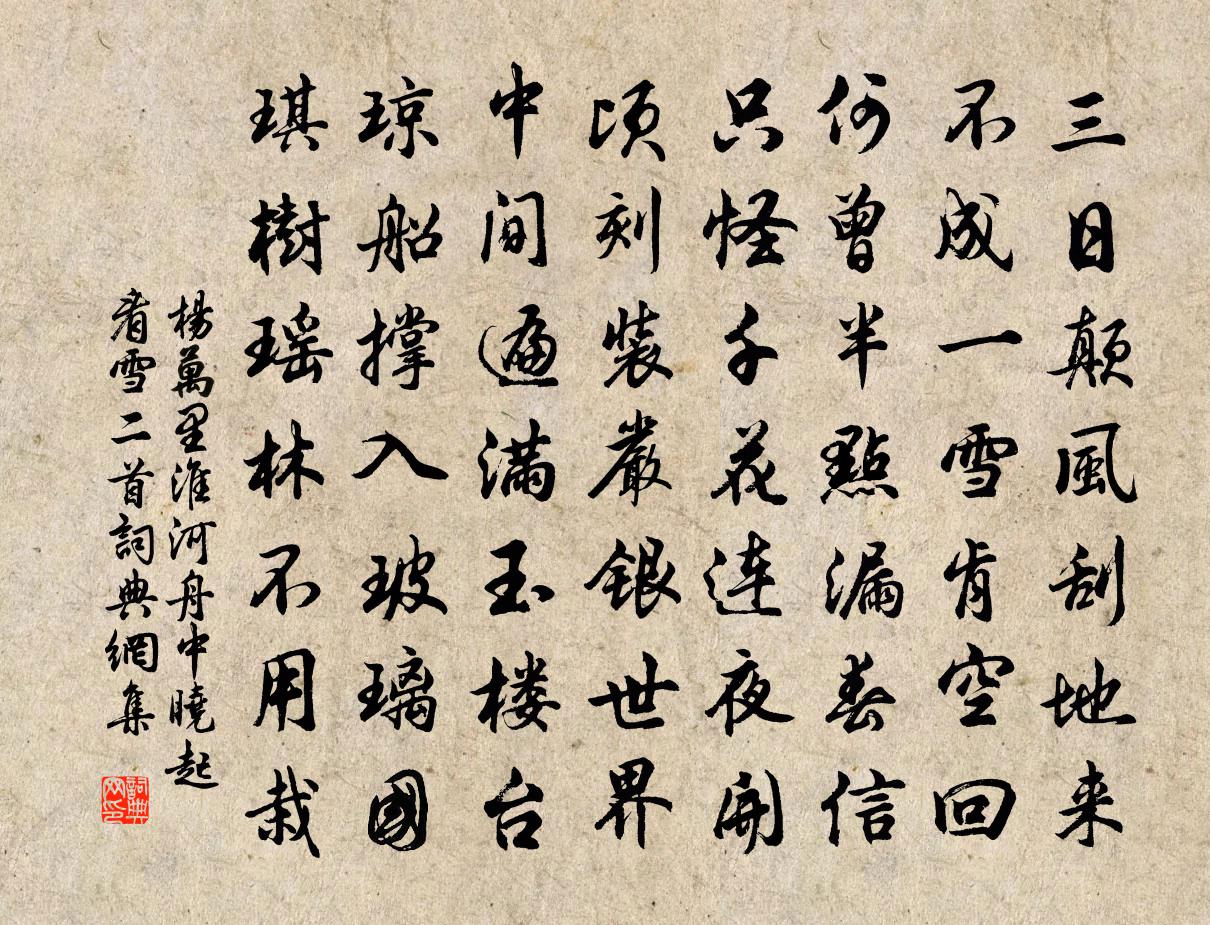 三日颠風刮地来
不成一雪肯空回
何曾半點漏春信
只怪千花连夜開
顷刻装嚴銀世界
中间遍滿玉楼台
琼船撑入玻璃國
琪樹瑶林不用栽
楊萬里淮河舟中曉起
看雪二首詞典網集
詞典網印